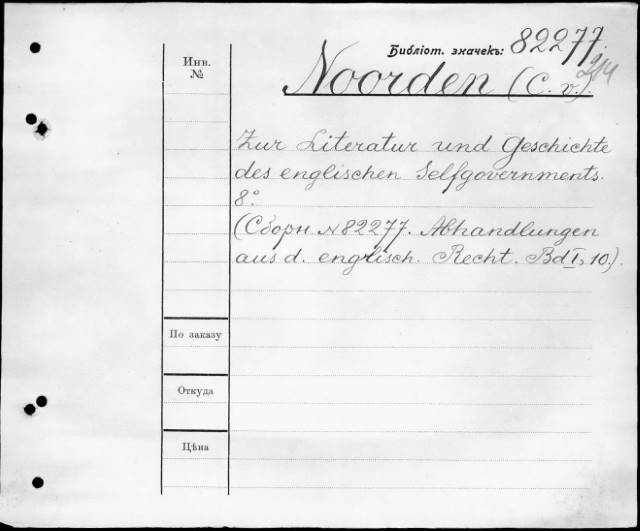 Библіот. значекъ: 82277.
Инв.
№
Noorden (C. v.).
Zur Literatur und Geschichte
des englischen Selfgovernments.
8°.
(Сборн № 82277. Abhandlungen
aus d. englisch. Recht. Bd I, 10.).
По заказу
Откуда
Цѣна